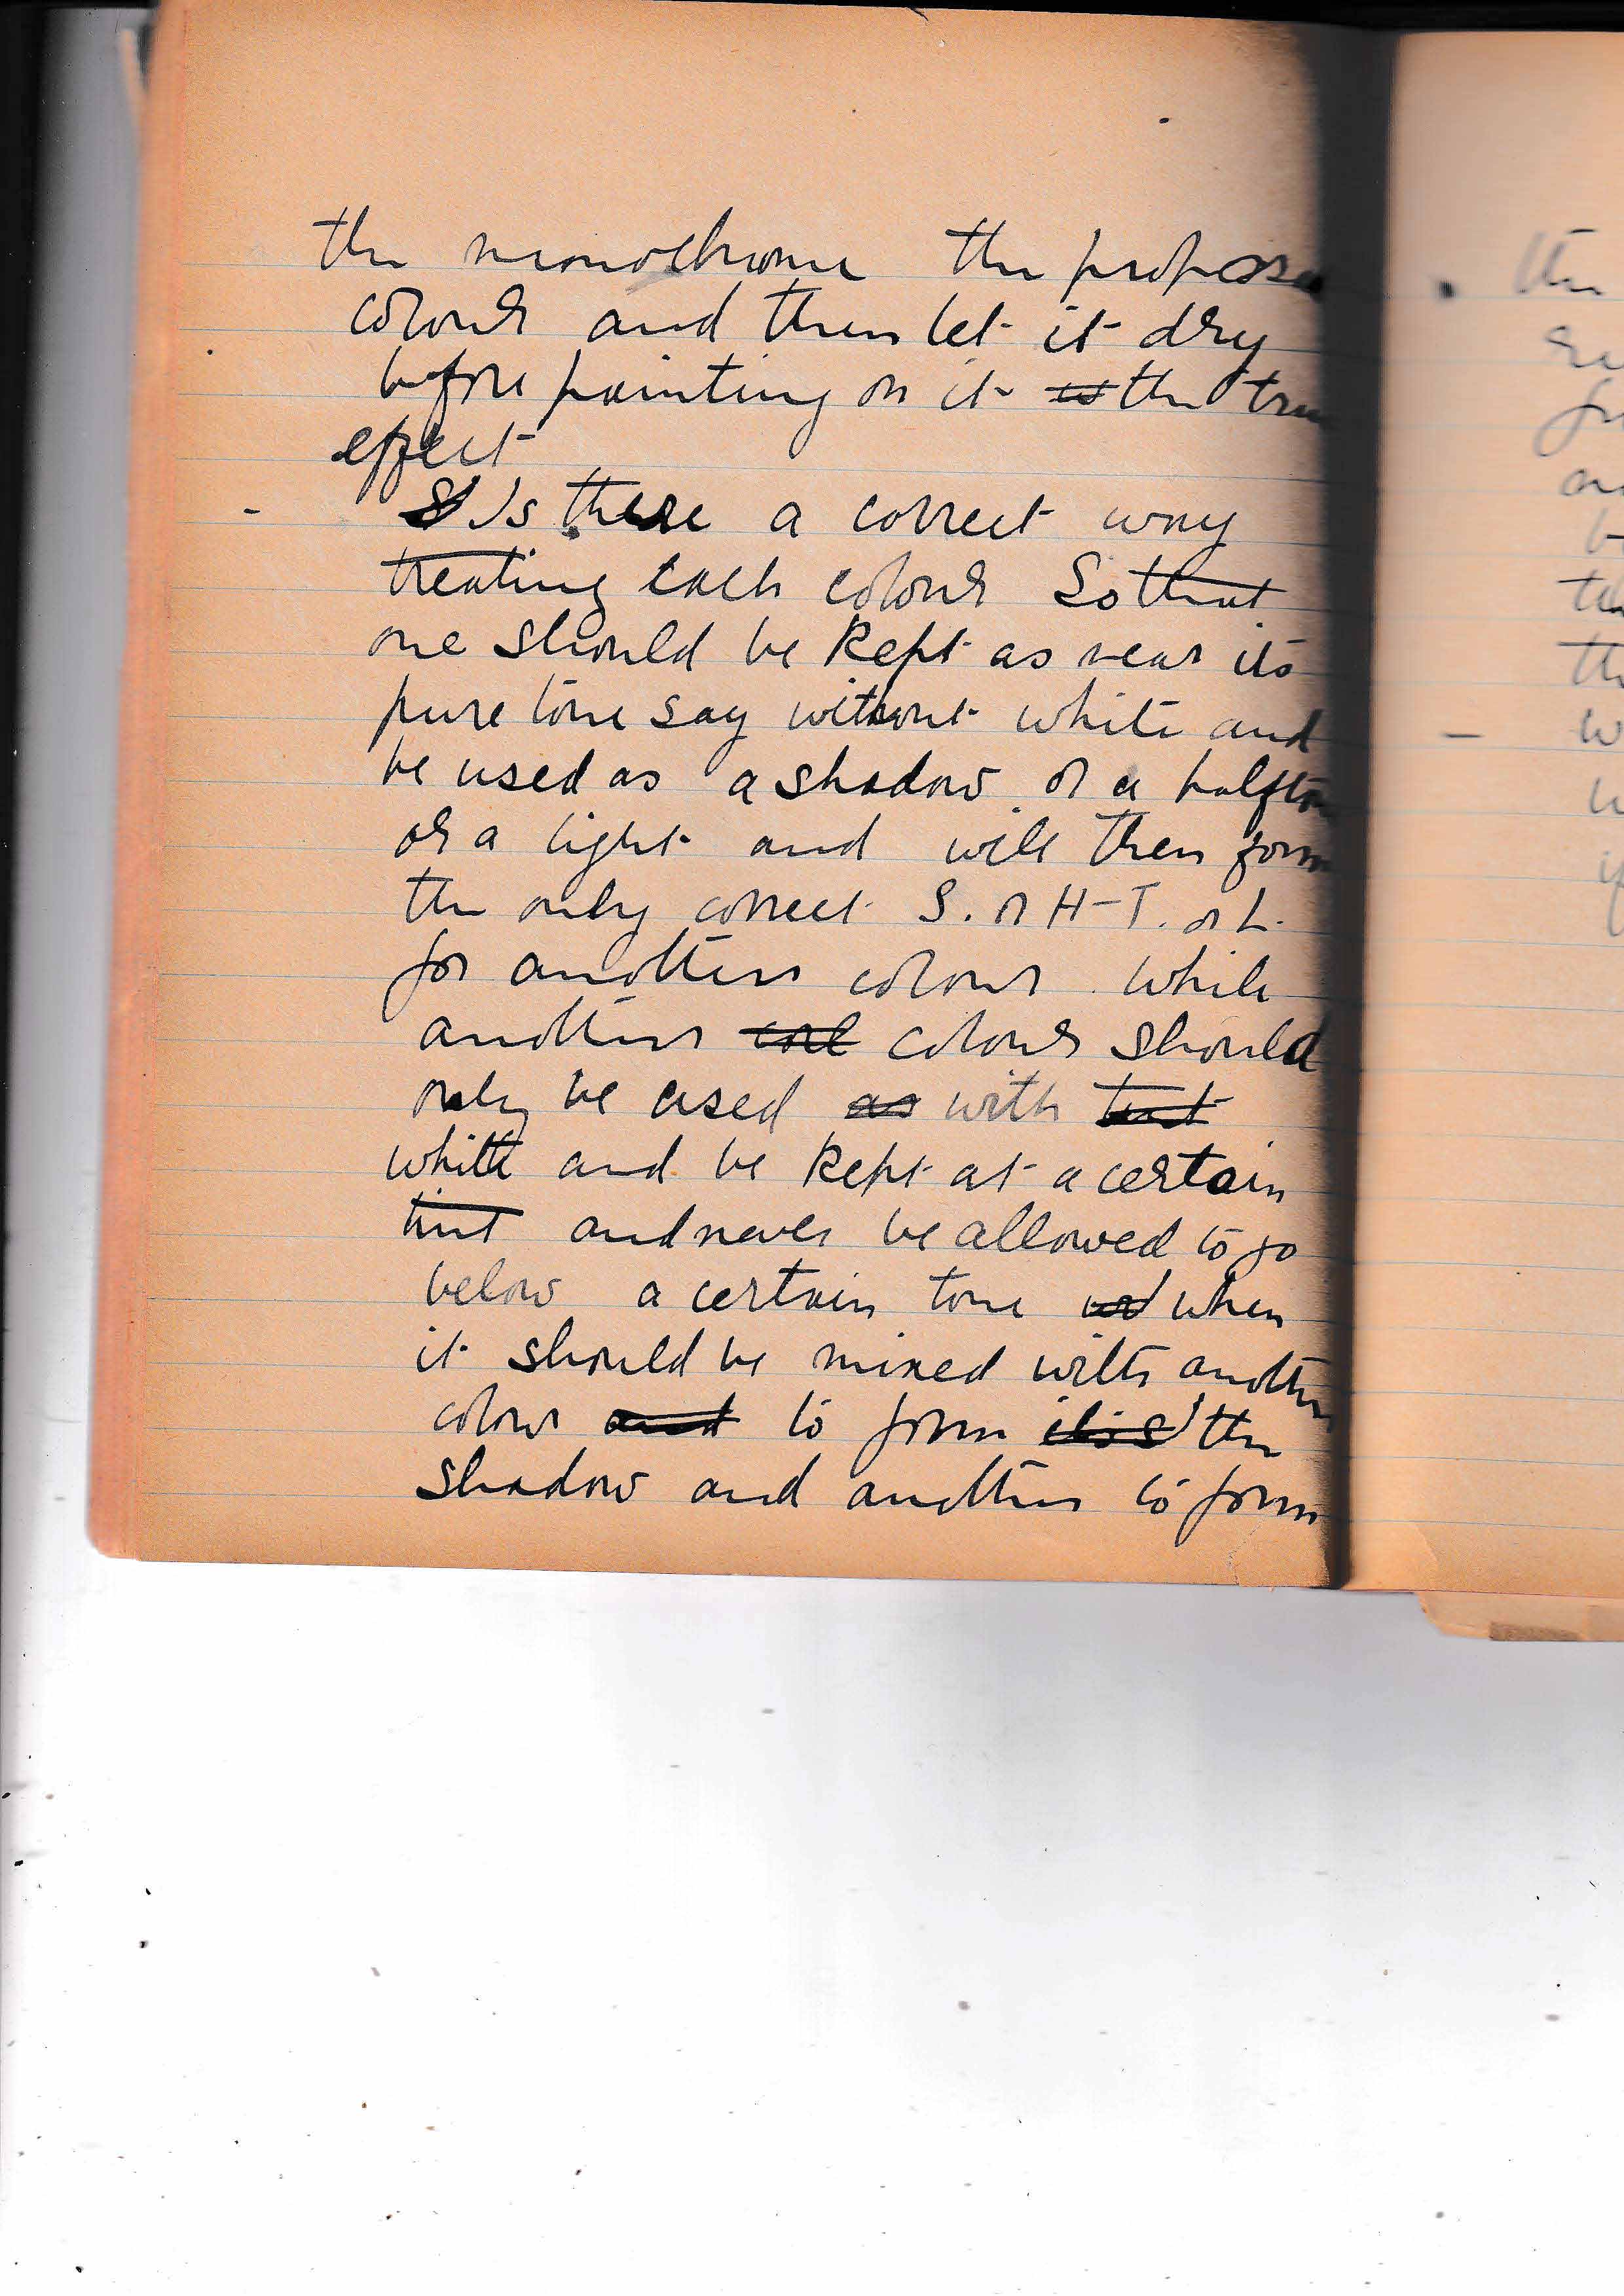 the monochrome the
colour and then let it dry
before painting on it is the
effect
- Is there a correct way
treating each colour So that
one should be kept as near its
pure tone say without white and
be used as a shadow or a
or a light and will then form
the only correct S. or H-T. or L.
for another colour. While
another col colour should
only be used as with tint
white and be kept at a certain
tint and never be allowed to go
below a certain tone when
it should be mixed with another
colour and to form its the
shadow and another to form